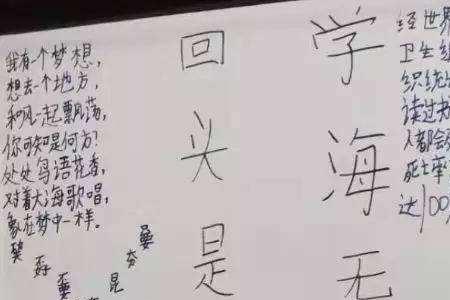 我有一个梦想，
想去一个地方，
和风一起飘荡，
你可知是何方？
处处鸟语花香，
对着大海歌唱，
象在梦中一样。
孬
昆
夯
学海无
回头是
经世界
卫生组
织统
读过
人都会
死亡率
达100